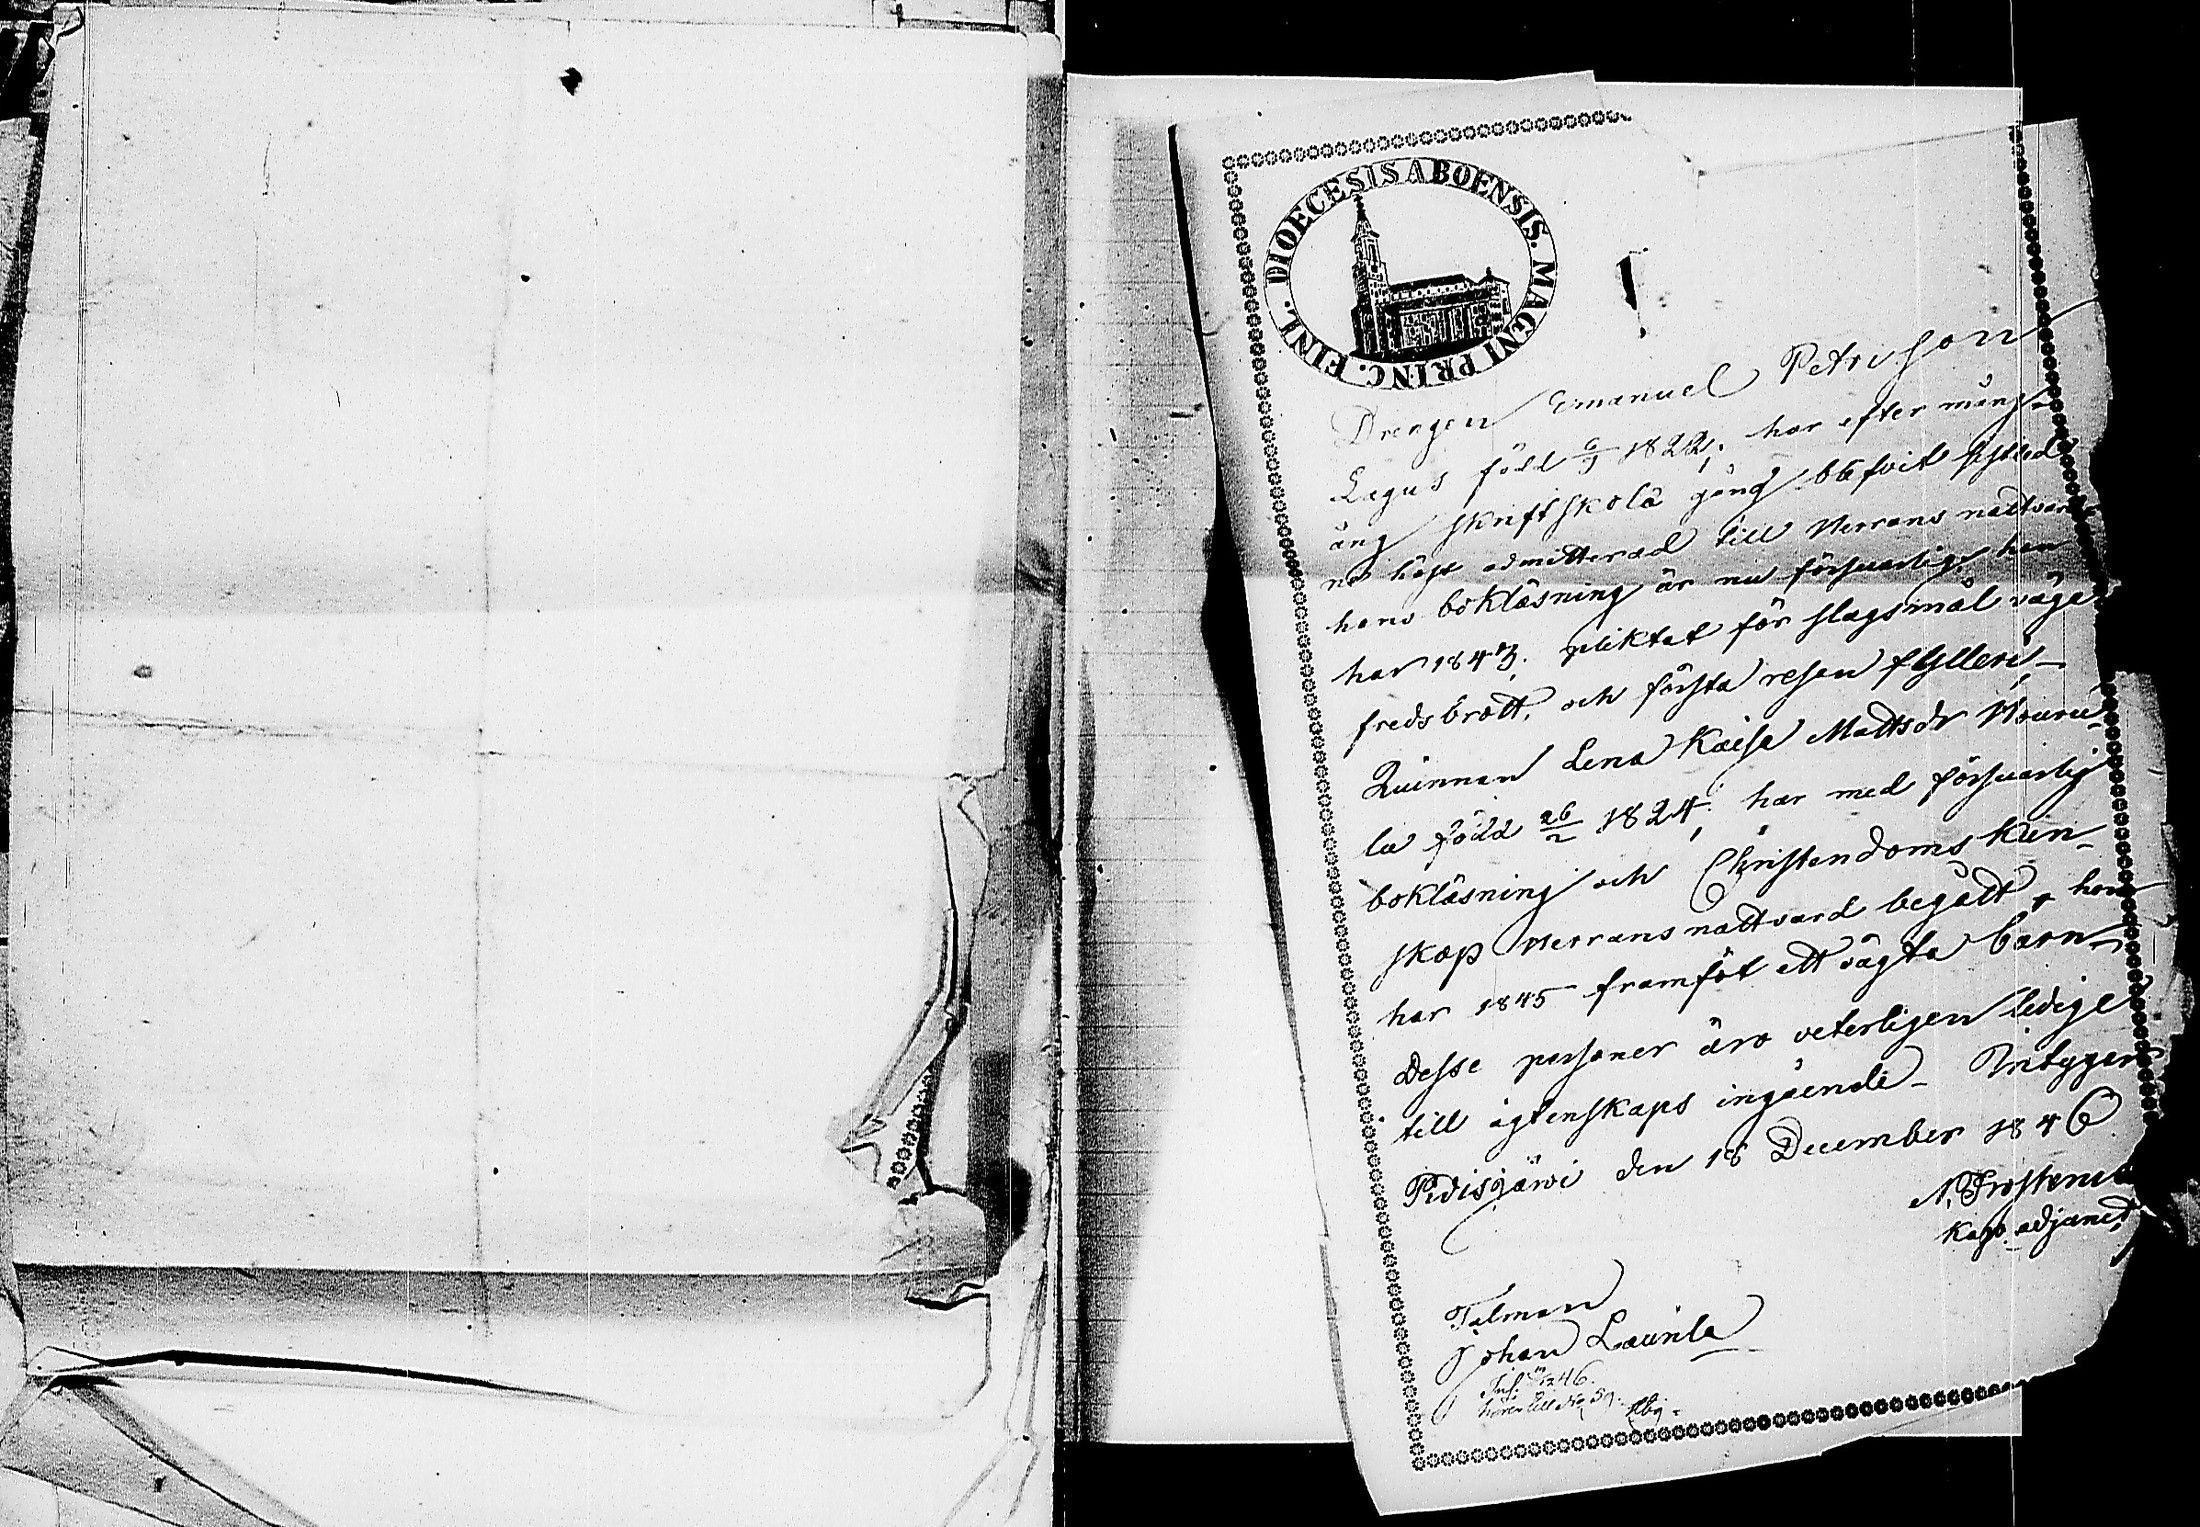 DIOECESIS ABOENSIS. MAGNI PRINC. FINL.
Drengen Emanuel Petrisson
Lagus född 6/9 1822, har efter mång-
ång skriftskola gång blifvit
admitterad till Herrans nattvard
hans bokläsning är nu försvarlig, han
har 1843. pliktat för slagsmål väga
fredsbrott, och första resan fylleri_
Quinnan Lena Kaisa Mattsdr Houru-
la född 26/2 1824, har med försvarlig
bokläsning och Christendoms kün_
skap Herrans nattvard begått, hon
har 1845 framföt ett oägta barn_
Desse personer äro veterligen ledige
till ägtenskaps ingående_ Intygar
Pedisjärvi den 18 December 1846
N. Frosterus
Kaps. adjunct.
Talman
Johan Launila
46.